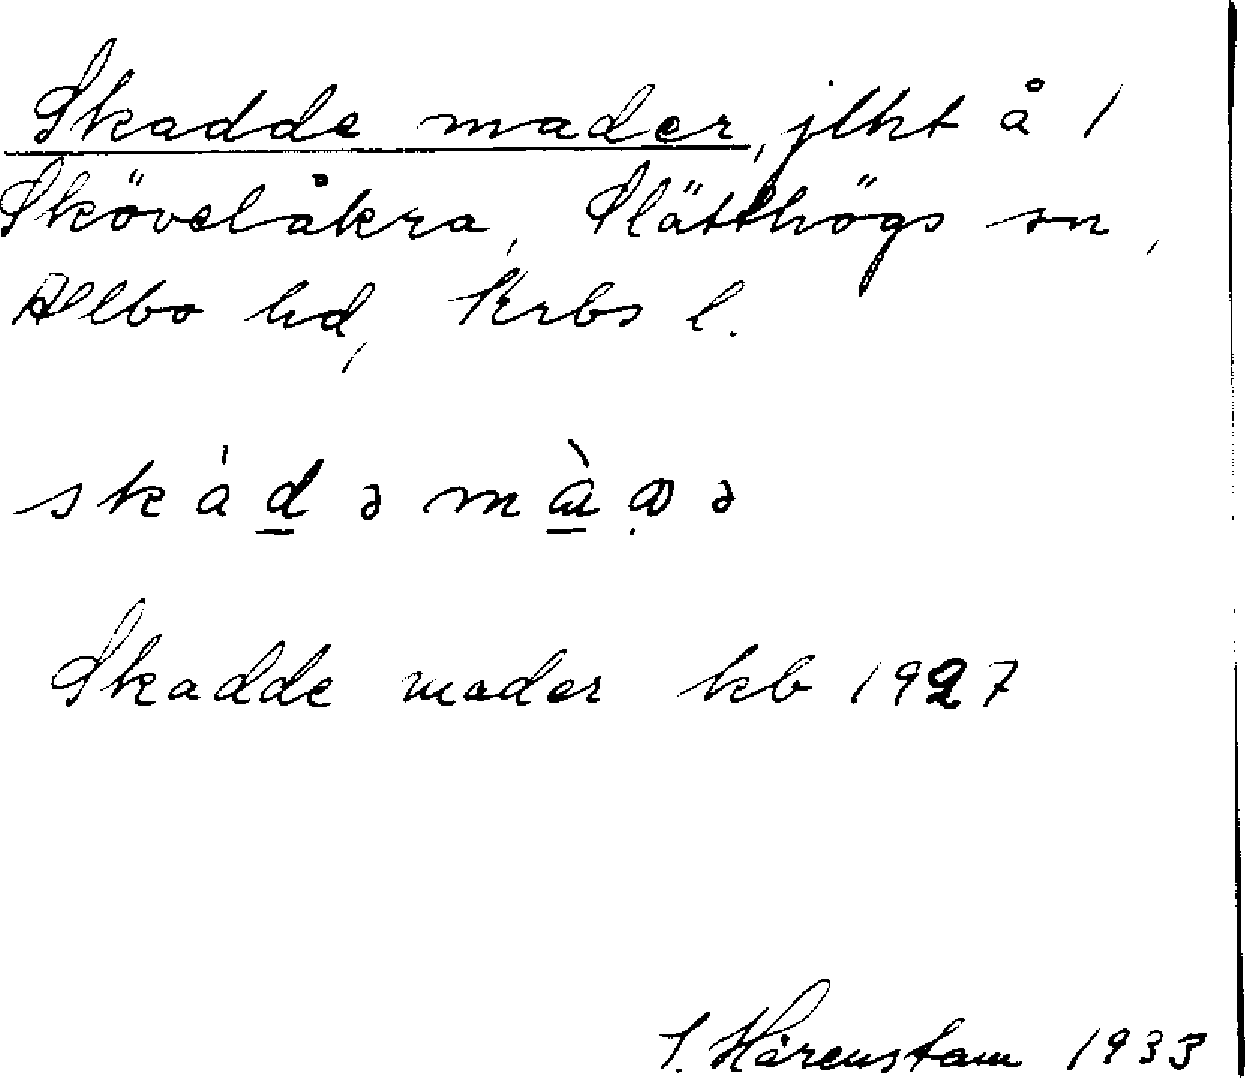 Skadde mader, jlht å 1
Skövelåkra, Slätthögs sn,
Allbo hd, Krbs l.
skàd̲ə mà̲ꝺ̣ə
Skadde mader kb 1927
S. Hårenstam 1933